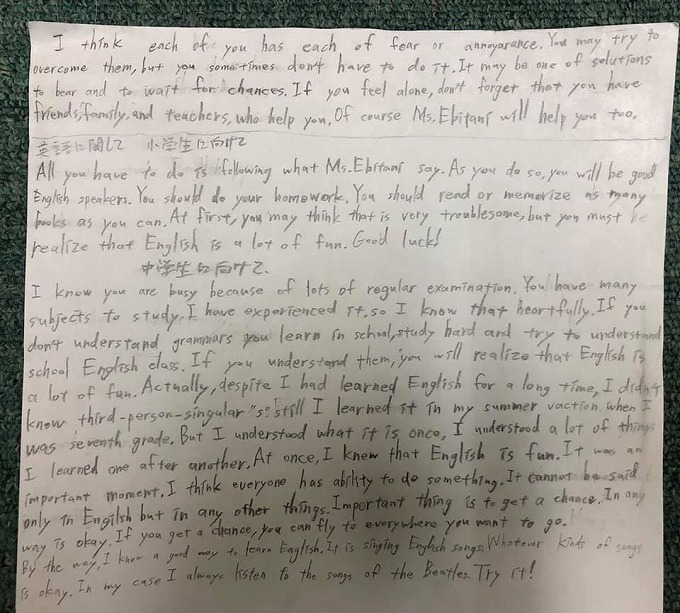 I think each of you has each of fear or annoyarance. You may try to
overcome them, but you sometimes don't have to do it. It may be one of solutions
to bear and to wait for chances. If you feel alone, don't forget that you have
friends, family, and teachers, who help you. Of course Ms. Ebitani will help you too.
英語に関して 小学生に向けて
All you have to do is following what Ms. Ebitani say. As you do so, you will be good
English speakers. You should do your homework. You should read or memorize as many
books as you can. At first, you may think that is very troublesome, but you must
realize that English is a lot of fun. Good luck!
中学生に向けて、
I know you are busy because of lots of regular examination. You have many
subjects to study. I have experienced it, so I know that heartfully. If you
don't understand grammars you learn in school, study hard and try to understand
school English class. If you understand them, you will realize that English is
a lot of fun. Actually, despite I had learned English for a long time, I didn't
know third-person-singular "s". still I learned it in my summer vaction when I
was seventh grade. But I understood what it is once, I understood a lot of things
I learned one after another. At once, I knew that English is fun. It was an
important moment. I think everyone has ability to do something. It cannot be said
only in Engilsh but in any other things. Important thing is to get a chance. In any
way is okay. If you get a chance, you can fly to everywhere you want to go.
By the way, I know a good way to learn English. It is singing English songs. Whatever kinds of songs
is okay. In my case I always listen to the songs of the Beatles. Try it!